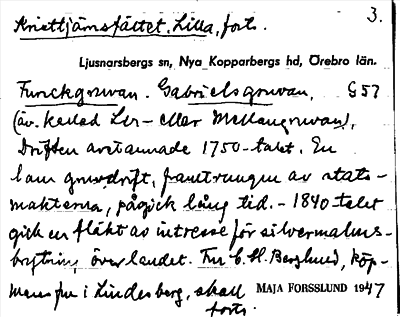 Kristtjärnsfältet, Lilla, forts. 3.
Ljusnarsbergs sn, Nya Kopparbergs hd, Örebro län.
Funckgruvan. Gabrielsgruvan, G 57
(äv. kallad Ler- eller Mellangruvan),
Driften avstannade 1750-talet. En
lam gruvdrift, framtvungen av stats-
makterna, pågick lång tid. - 1840-talet
gick en fläkt av intresse för silvermalms-
brytning över landet. Fru C. H. Berglund, köp-
mansfru i Lindesberg, skall MAJA FORSSLUND 1947
forts.